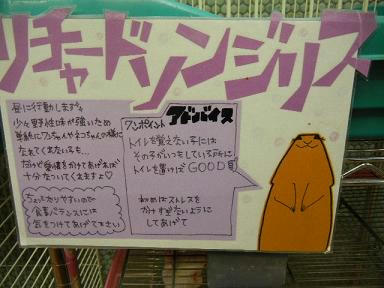 リチャードソンジリス
昼に行動します。
少々野性味が強いため
単純にワンちゃんやネコちゃんの様に
なれてくれないかも…
だけど愛情をかけてあげれば
十分なついてくれますよ♡
ちょっと太りやすいので
食事バランスには
気をつけてあげて下さい
ワンポイント
アドバイス
トイレを覚えない子には
その子がいつもしている所に
トイレを置けばGOOD!!
初めはストレスを
かけすぎないように
してあげて